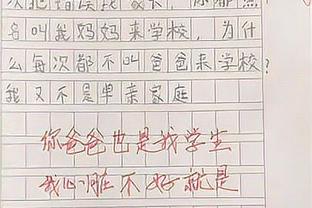 次犯错误
你都点
名叫我妈妈来学校，为什
么每次都不叫爸爸来学校？
我又不是单亲家庭
你爸爸也是我学生
我心脏不好就是